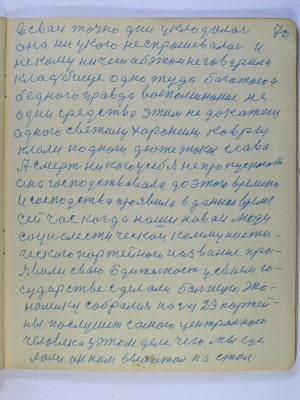 70
в сваи точно дни укладалас
она ни у кого неспрашевалас и
некому ничего обэтом неговарила
кладбище одно туда багатого и
бедного правда воспоминание не
одни средства этим не докажеш
одного светилу хоронили ковры
клали по дном дюжета слава
А смерт никого у себя не пропускност
она господствавала до этого времени
и господства проявила в данное время
сей час когда наши новаи люди
социслестическаи комунисти-
ческого партейного название про-
явили сваю бдителност у сваем го-
сударстве сделали балшую эко-
номику собралися на 23 партей-
ны послушет самого централного
человека у этом деле чего мы сде
лали он нам выложил на стол